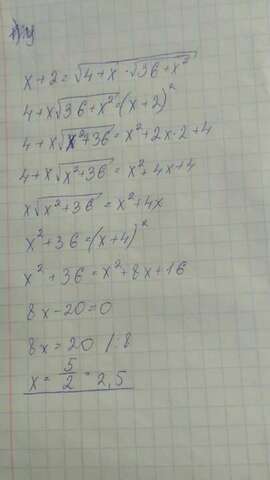 x+2=√(4+x·√(36+x²))
4+x√(36+x²)=(x+2)²
4+x√(x²+36)=x²+2x·2+4
4+x√(x²+36)=x²+4x+4
x√(x²+36)=x²+4x
x²+36=(x+4)²
x²+36=x²+8x+16
8x-20=0
8x=20 /:8
x=5/2=2,5